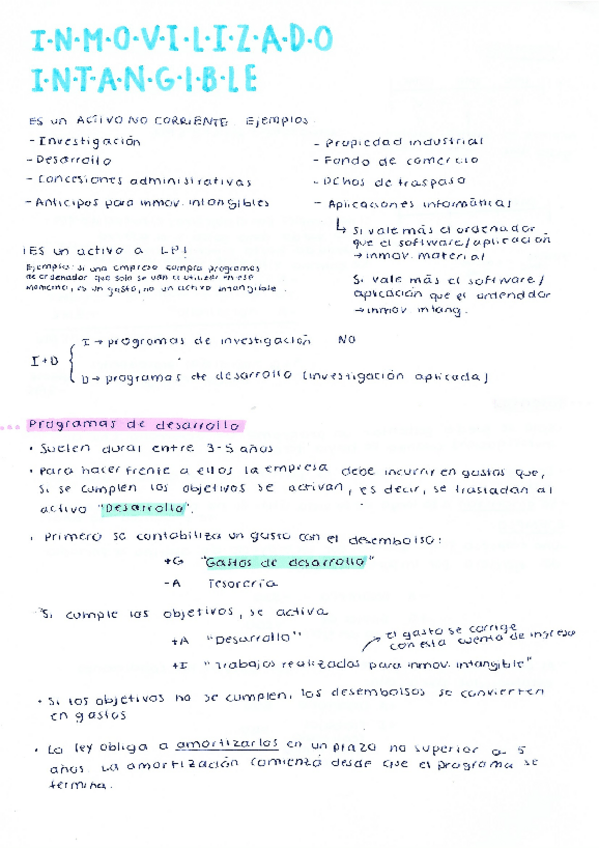 I·N·M·O·V·I·L·I·Z·A·D·O
I·N·T·A·N·G·I·B·L·E
ES UN ACTIVO NO CORRIENTE. Ejemplos:
- Investigación
- Desarrollo
- Concesiones administrativas
- Anticipos para inmov. intangibles
- Propiedad industrial
- Fondo de comercio
- Dchos de traspaso
- Aplicaciones informáticas
↳ Si vale más el ordenador
que el software/aplicación
→ inmov. material
Si vale más el software/
aplicación que el ordenador
→ inmov. intang.
¡ES un activo a LP!
Ejemplo: si una empresa compra programas
de ordenador que solo se van a utilizar en ese
momento, es un gasto, no un activo intangible.
I+D { I → programas de investigación NO
D → programas de desarrollo (investigación aplicada)
Programas de desarrollo
· Suelen durar entre 3-5 años
· Para hacer frente a ellos la empresa debe incurrir en gastos que,
si se cumplen los objetivos se activan, es decir, se trasladan al
activo "Desarrollo".
· Primero se contabiliza un gasto con el desembolso:
+G "Gastos de desarrollo"
-A Tesorería
· Si cumple los objetivos, se activa
+A "Desarrollo"
→ el gasto se corrige
con esta cuenta de ingreso
+I "Trabajos realizados para inmov. intangible"
· Si los objetivos no se cumplen, los desembolsos se convierten
en gastos
· La ley obliga a amortizarlos en un plazo no superior a 5
años. La amortización comienza desde que el programa se
termina.